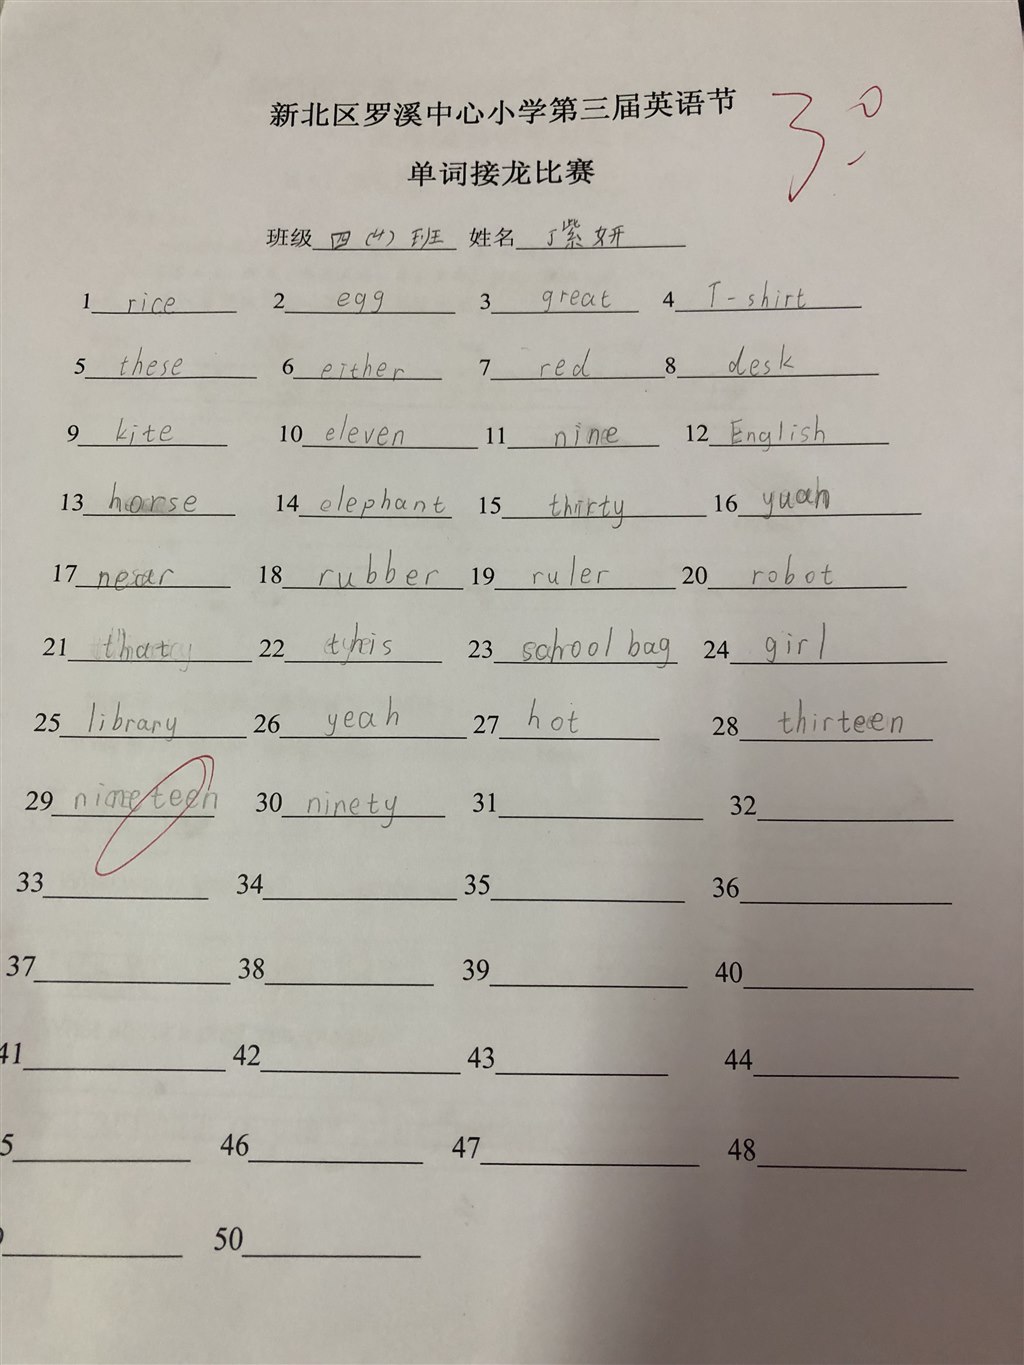 新北区罗溪中心小学第三届英语节
30
单词接龙比赛
班级 四(4)班 姓名 丁紫妍
1 rice 2 egg 3 great 4 T-shirt
5 these 6 either 7 red 8 desk
9 kite 10 eleven 11 nine 12 English
13 horse 14 elephant 15 thirty 16 yuan
17 near 18 rubber 19 ruler 20 robot
21 that 22 this 23 school bag 24 girl
25 library 26 yeah 27 hot 28 thirteen
29 nineteen 30 ninety 31 32
33 34 35 36
37 38 39 40
41 42 43 44
5 46 47 48
50